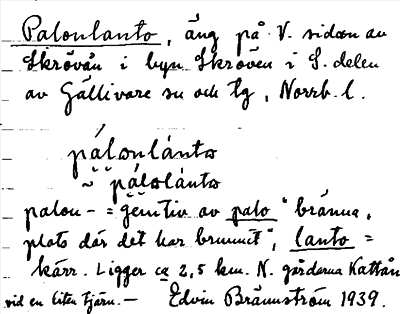 Palonlanto, äng på V. sidan av
Skröván i byn Skröven i S. delen
av Gällivare sn och tg, Norrb. l.
pálonlánto
~ pálolánto
palon- = genitiv av palo "bränna,
plats där det har brunnit", lanto =
kärr. Ligger ca 2,5 km. N. gårdarna Kattån
vid en liten tjärn. — Edvin Brännström 1939.